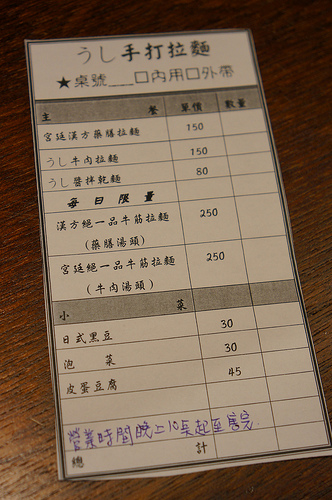 うし手打拉麵
★桌號___□內用□外帶
主餐 單價 數量
宮廷漢方藥膳拉麵 150
うし牛肉拉麵 150
うし醬拌乾麵 80
每日限量
漢方絕一品牛筋拉麵 250
(藥膳湯頭)
宮廷絕一品牛筋拉麵 250
(牛肉湯頭)
小菜
日式黑豆 30
泡菜 30
皮蛋豆腐 45
營業時間晚上10點起至售完
總計